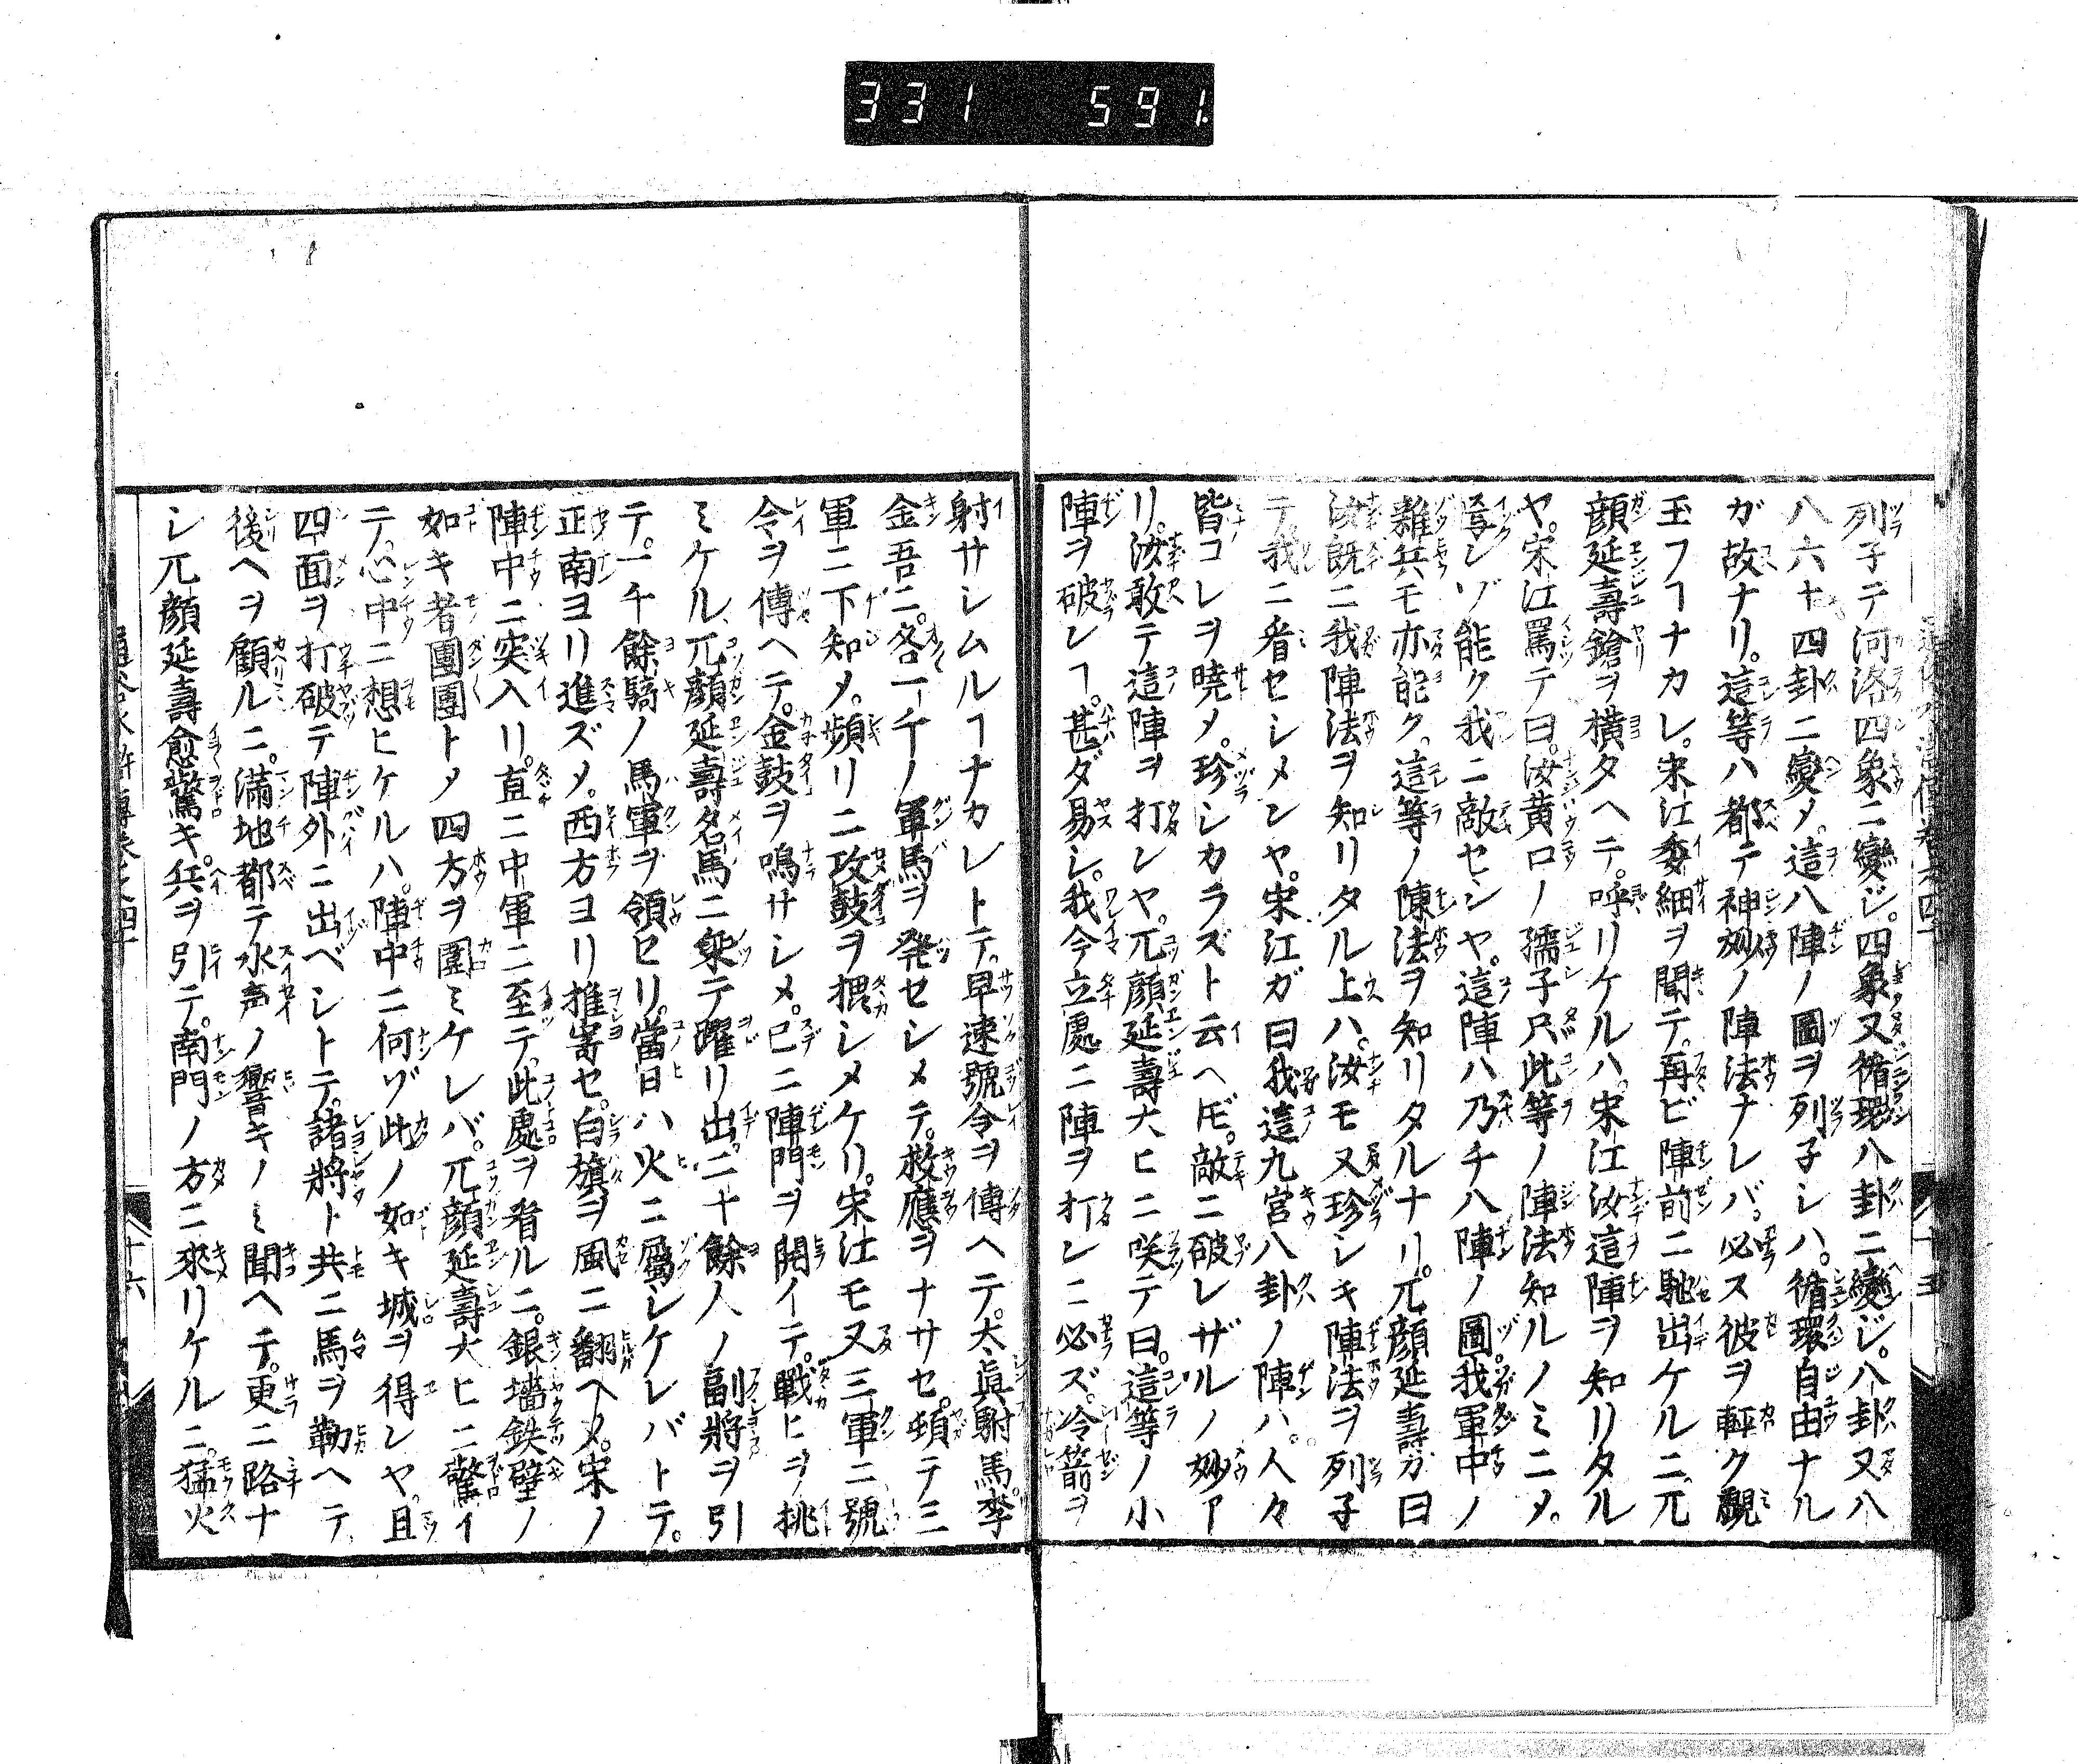 331 591.
列子テ河洛四象ニ變ジ。四象又循環八卦ニ變ジ。八卦又八
八六十四卦ニ變メ。這八陣ノ圖ヲ列子シハ。循環自由ナル
ガ故ナリ。這等ハ都テ神妙ノ陣法ナレバ。必ス彼ヲ輕ク覷
玉フヿナカレ。宋江委細ヲ聞テ。再ビ陣前ニ馳出ケルニ、兀
顔延壽鎗ヲ横タヘテ。呼リケルハ。宋江汝這陣ヲ知リタル
ヤ。宋江罵テ曰。汝黄口ノ孺子只此等ノ陣法知ルノミニメ。
レゾ能ク我ニ敵センヤ。這陣ハ乃チ八陣ノ圖。我軍中ノ
雜兵モ亦能ク。這等ノ陣法ヲ知リタルナリ。兀顔延壽ガ曰
汝既ニ我陣法ヲ知リタル上ハ。汝モ又珍シキ陣法ヲ列子
テ我ニ看セシメンヤ。宋江ガ曰我這九宮八卦ノ陣ハ。人々
皆コレヲ曉メ。珍シカラズト云ヘ𪜈。敵ニ破レザルノ妙ア
リ。汝敢テ這陣ヲ打ンヤ。兀顔延壽大ヒニ咲テ曰。這等ノ小
陣ヲ破レヿ。甚ダ易シ。我今立處ニ陣ヲ打ンニ必ズ。冷箭ヲ
十五
射サシムルヿナカレトテ。早速號令ヲ傳ヘテ。太眞駙馬李
金吾ニ。各一千ノ軍馬ヲ発セシメテ。救應ヲナサセ。頓テ三
軍ニ下知メ。頻リニ攻鼓ヲ擂シメケリ。宋江モ又三軍ニ號
令ヲ傳ヘテ。金鼓ヲ鳴サシメ。已ニ陣門ヲ開イテ。戰ヒヲ挑
ミケル、兀顔延壽名馬ニ乘テ躍リ出。二十餘人ノ副將ヲ引
テ。一千餘騎ノ馬軍ヲ領セリ。當日ハ火ニ屬シケレバトテ。
正南ヨリ進ズメ。西方ヨリ推寄セ。白旗ヲ風ニ翻ヘメ。宋ノ
陣中ニ突入リ。直ニ中軍ニ至テ。此處ヲ看ルニ。銀墻鉄壁ノ
如キ者團團トメ四方ヲ圍ミケレバ。兀顔延壽大ヒニ驚イ
テ。心中ニ想ヒケルハ。陣中ニ何ゾ此ノ如キ城ヲ得レヤ。且
四面ヲ打破テ陣外ニ出ベシトテ。諸將ト共ニ馬ヲ勒ヘテ
後ヘヲ顧ルニ。滿地都テ水声ノ響キノミ聞ヘテ。更ニ路ナ
シ兀顔延壽愈驚キ。兵ヲ引テ。南門ノ方ニ來リケルニ。猛火
十六